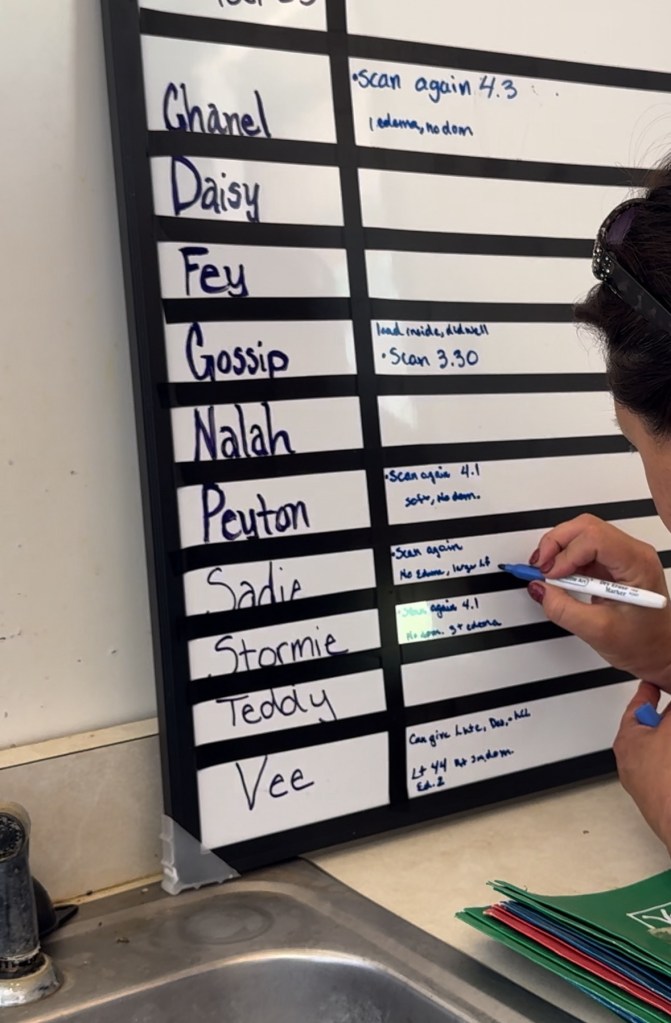 Chanel
•Scan again 4.3
1 edema, no dom
Daisy
Fey
Gossip
load inside, did well
•Scan 3.30
Nalah
Peyton
•Scan again 4.1
soft, No dom.
Sadie
•Scan again
No Edema, larger Lf
Stormie
•Scan again 4.1
No dom. 3+ edema
Teddy
Vee
Can give Lute,
Lt 44 Rt dom.
Ed. 2
Dry Erase
Marker